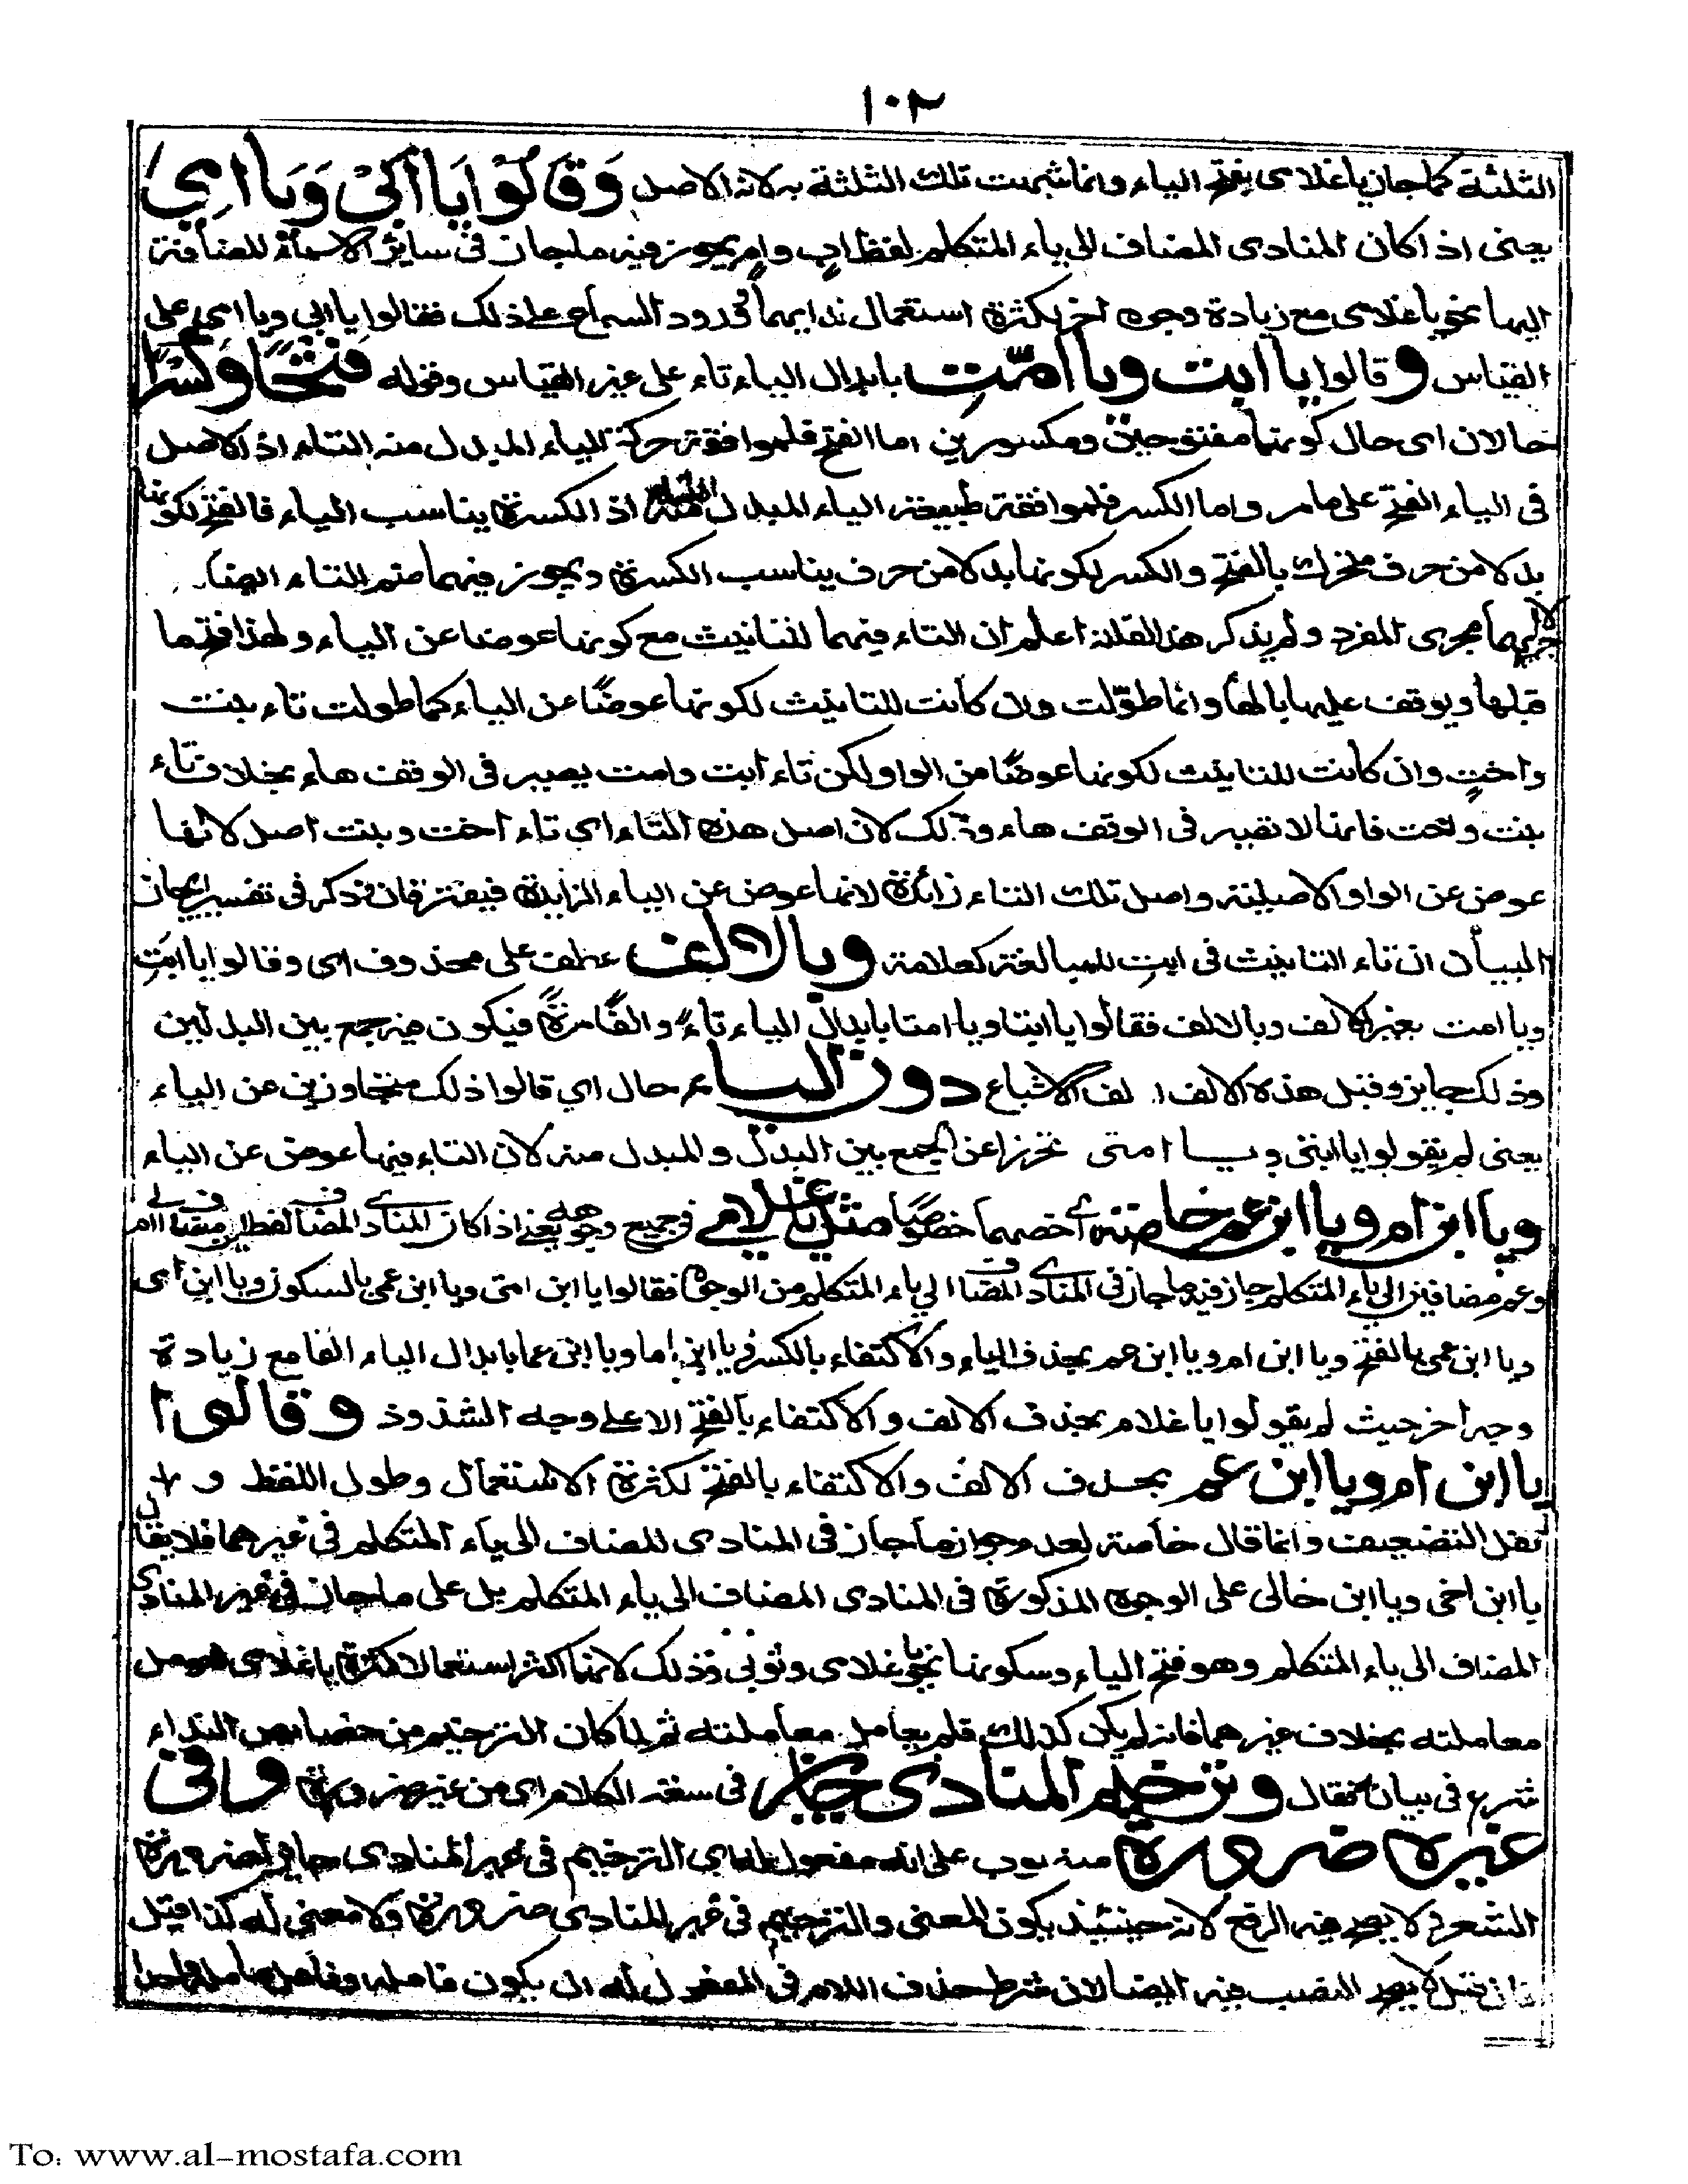 ١٠٢
الثلثة كما جاز يا غلامى بفتح الياء وانما شبهت تلك الثلثة به لانه الاصل وَقَالُوْا يَا اَبِىْ وَيَا اُمِّى
يعنى اذا كان المنادى المضاف الى ياء المتكلم لفظ اب وام يجوز فيه ما جاز فى سائر الاسماء المضافة
اليها نحو يا غلامى مع زيادة وجوه اخر لكثرة استعمال ندايهما وورود السماع على ذلك فقالوا يا ابى ويا امى على
القياس وقالوا يا ابت ويا امّت بابدال الياء تاء على غير القياس وقوله فتحًا وكسرًا
حالان اى حال كونهما مفتوحين ومكسورين اما الفتح فلموافقة حركة الياء المبدل منه التاء اذ الاصل
فى الياء الفتح على ما مر واما الكسر فلموافقة طبيعة الياء المبدل منه التاء اذ الكسرة يناسب الياء فالفتح لكونها
بدلا من حرف متحرك بالفتح والكسر لكونها بدلا من حرف يناسب الكسرة ويجوز فيهما ضم التاء ايضا
لاجرائهما مجرى المفرد ولم يذكر هذا لقلته اعلم ان التاء فيهما للتانيث مع كونها عوضا عن الياء ولهذا فتح ما
قبلها ويوقف عليها بالهاء وانما طوّلت وان كانت للتانيث لكونها عوضًا عن الياء كما طولت تاء بنت
واخت وان كانت للتانيث لكونها عوضًا من الواو لكن تاء ابت وامت يصير فى الوقف هاء بخلاف تاء
بنت واخت فانها لا تصير فى الوقف هاء وذلك لان اصل هذه التاء اى تاء اخت وبنت اصل لانها
عوض عن الواو الاصلية واصل تلك التاء زائدة لانها عوض عن الياء الزايدة فيفترقان وذكر فى تفسير ايجاز
البيان ان تاء التانيث فى ابت للمبالغة كعلامة وبالالف عطف على محذوف اى وقالوا يا ابت
ويا امت بغير الالف وبالالف فقالوا يا ابتا ويا امتا بابدال الياء تاءً والفًا مرةً فيكون فيه جمع بين البدلين
وذلك جايز وقيل هذه الالف الف الاشباع دون الياء حال اى قالوا ذلك متجاوزين عن الياء
يعنى لم يقولوا يا ابتى ويا امتى تحرزا عن الجمع بين البدل والمبدل منه لان التاء فيهما عوض عن الياء
ويا ابن ام ويا ابن عم خاصة اى اخصهما خصوصًا مثل يا غلامى فى جميع وجوهه يعنى اذا كان المنادى المضاف لفظ ابن مضافا الى ام
وعم مضافين الى ياء المتكلم جاز فيه ما جاز فى المنادى المضاف الى ياء المتكلم من الوجوه فقالوا يا ابن امى ويا ابن عمى بالسكون ويا ابن امى
ويا ابن عمى بالفتح ويا ابن ام ويا ابن عم بحذف الياء والاكتفاء بالكسر ويا ابن اما ويا ابن عما بابدال الياء الفا مع زيادة
وجه اخر حيث لم يقولوا يا غلام بحذف الالف والاكتفاء بالفتح الا على وجه الشذوذ وقالوا
يا ابن ام ويا ابن عم بحذف الالف والاكتفاء بالفتح لكثرة الاستعمال وطول اللفظ و
ثقل التضعيف وانما قال خاصة لعدم جواز ما جاز فى المنادى المضاف الى ياء المتكلم فى غيرهما فلا يقال
يا ابن اخى ويا ابن خالى على الوجوه المذكورة فى المنادى المضاف الى ياء المتكلم بل على ما جاز فى غير المنادى
المضاف الى ياء المتكلم وهو فتح الياء وسكونها نحو يا غلامى وثوبى وذلك لانهما اكثر استعمالا لكثرة يا غلامى
معاملته بخلاف غيرهما فانه لم يكن كذلك فلم يعامل معاملته ثم لما كان الترخيم من خصايص النداء
شرع فى بيانه فقال وترخيم المنادى جائز فى سعة الكلام اى من غير ضرورة وفى
غيره ضرورة منصوب على انه مفعول له اى الترخيم فى غير المنادى جايز لضرورة
الشعر ولا يصح فيه الرفع لانه حينئذ يكون المعنى والترخيم فى غير المنادى ضرورة ولا معنى له كذا قيل
فان قيل لا يصح النصب فيه ايضا لان شرط حذف اللام فى المفعول له ان يكون فاعله وفاعل عامله واحدا
To: www.al-mostafa.com